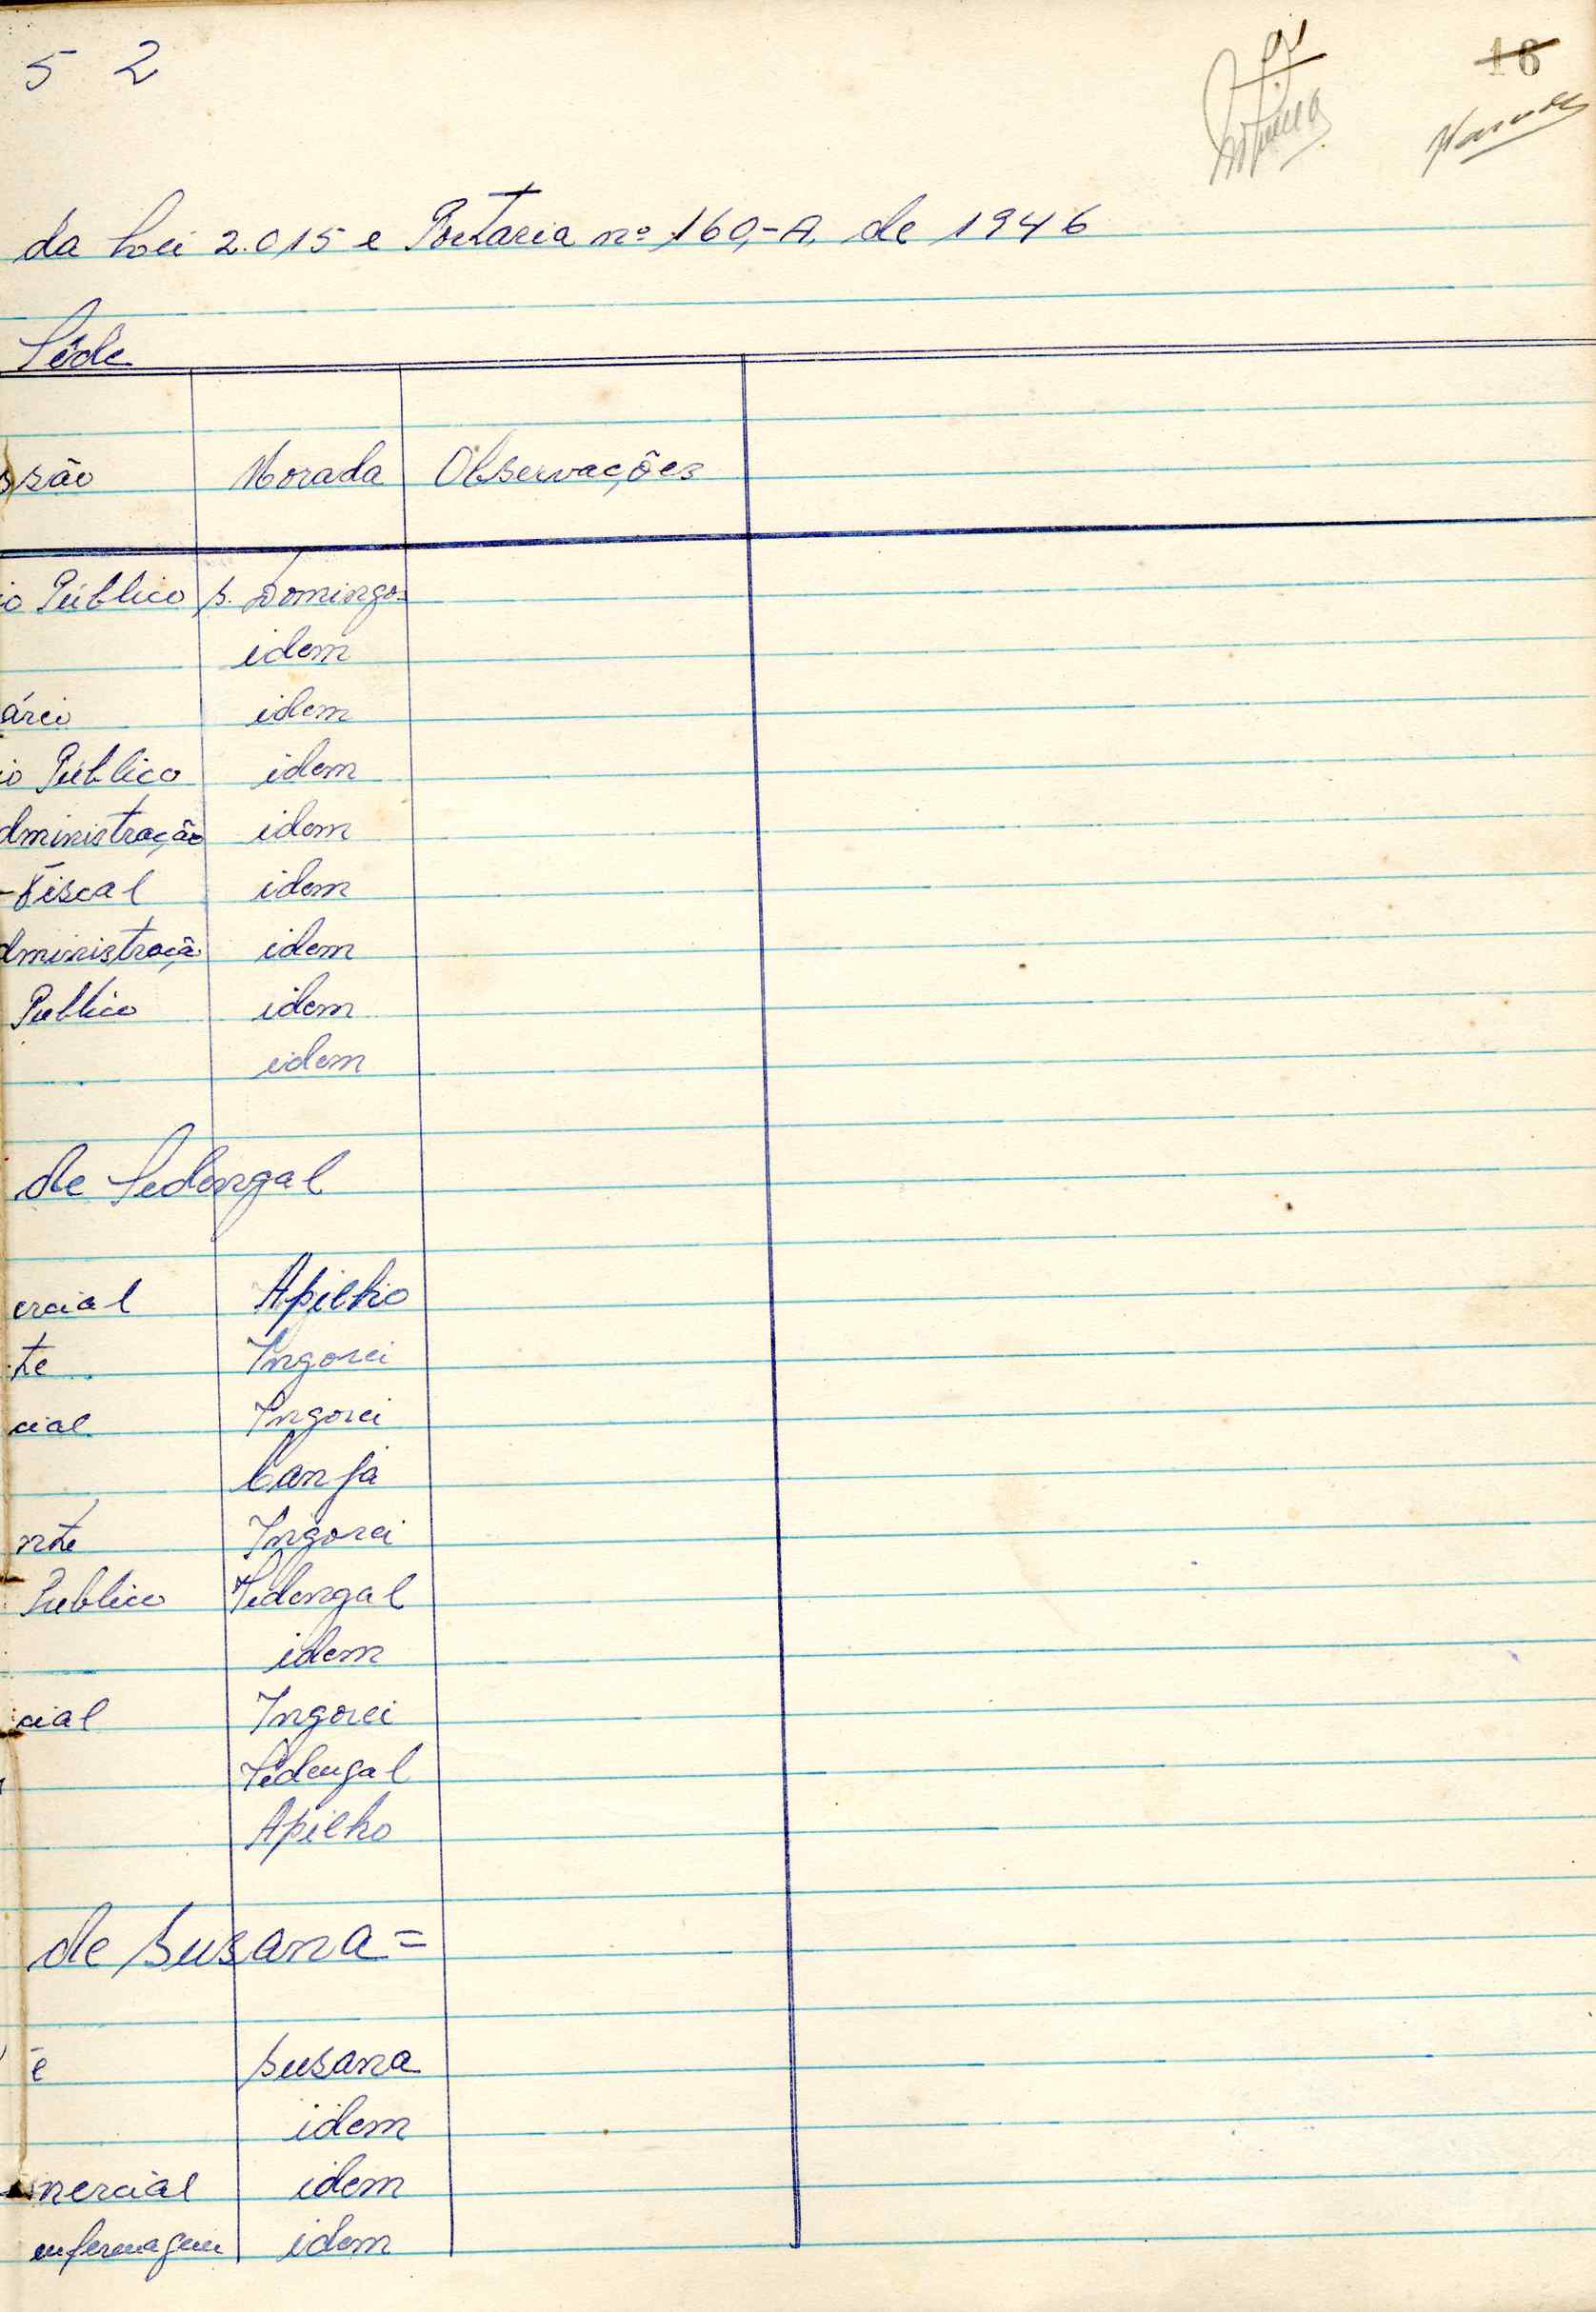 5 2
16
da Lei 2.015 e Portaria nº 160,-A, de 1946
Séde
ssão Morada Observações
io Público S. Domingos
idem
ário idem
io Público idem
dministração idem
-Fiscal idem
dministração idem
Publico idem
idem
de Sedengal
ercial Apilho
te Ingorei
cial Ingorei
Canja
nte Ingorei
Publico Sedengal
idem
cial Ingorei
Sedengal
Apilho
de Susana =
é Susana
idem
mercial idem
enfermagem idem